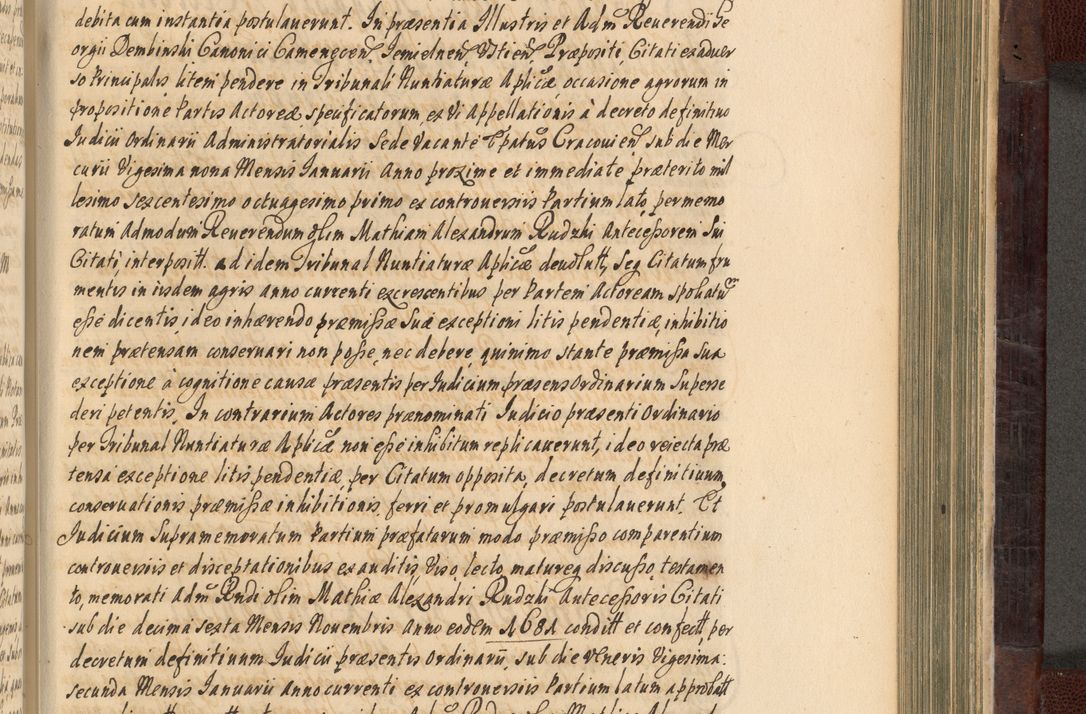 debita cum instantia postulauerunt. In præsentia Illustris et Adm Reuerendi Ge
orgii Dembinski Canonici Camenecen, Iemielnen, Ustien, Præpositi, Citati ex aduer
so Principalis litem pendere in Tribunali Nuntiaturæ Aplicæ occasione agrorum in
propositione Partis Actoreæ specificatorum, ex Vi Appellationis à decreto definitiuo
Iudicii Ordinarii Administratorialis Sede Vacante Epatus Cracouien sub die Mer
curii Vigesima nona Mensis Ianuarii Anno proxime et immediate præterito mil
lesimo sexcentesimo octuagesimo primo ex controuersiis Partium lato, per memo
ratum Admodum Reuerendum olim Mathiam Alexandrum Rudzki Antecessorem Sui
Citati, interposit. ad idem Tribunal Nuntiaturæ Aplicæ deuolutt, Seq Citatum fru
mentis in iisdem agris anno currenti excrescentibus per Partem Actoream spoliatu
esse dicentis, ideo inhærendo præmissæ Suæ exceptioni litis pendentiæ, inhibitio
nem prætensam conseruari non posse, nec debere, quinimo stante præmissa sua
exceptione à cognitione causæ præsentis per Iudicium præsens Ordinarium Superse
deri petentis, In contrarium Actores prænominati Iudicio præsenti Ordinario
per Tribunal Nuntiaturæ Aplicæ non esse inhibitum replicauerunt, ideo reiecta præ
tensa exceptione litis pendentiæ, per Citatum opposita, decretum definitiuum
conseruationis præmissæ inhibitionis, ferri et promulgari postulauerunt. Et
Iudicium Supramemoratum Partium præfatarum modo præmisso comparentium
controuersiis et disceptationibus exauditis, Viso, lecto, matureq discusso, testamen
to, memorati Adm Rndi olim Mathiæ Alexandri Rudzki Antecessoris Citati
sub die decima sexta Mensis Nouembris Anno eodem 1681 conditt et confectt per
decretum definitiuum Iudicii præsentis Ordinarii, sub die Veneris Vigesima:
secunda Mensis Ianuarii Anno currenti ex controuersiis Partium latum approbatt